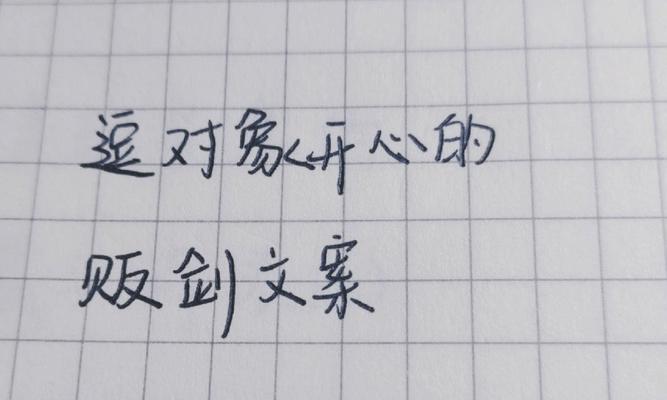 逗对象开心的
贩剑文案